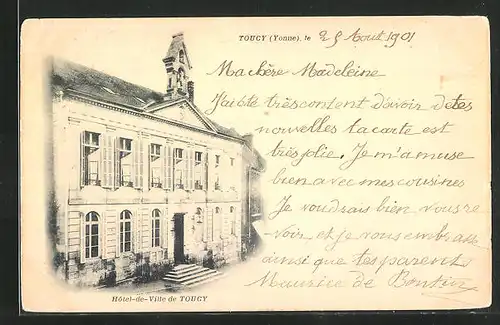 TOUCY (Yonne), le 25 Aout 1901
Ma chère Madeleine
J'ai été très content d'avoir de tes
nouvelles ta carte est
très jolie. Je m'amuse
bien avec mes cousines
Je voudrais bien vous re
voir et je vous embrasse
ainsi que tes parents
Maurice de
Hôtel-de-Ville de TOUCY